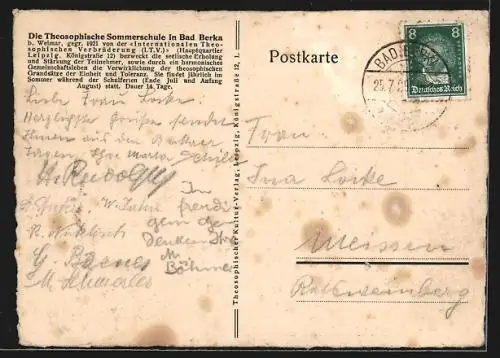 Die Theosophische Sommerschule in Bad Berka
b. Weimar, gegr. 1921 von der «Internationalen Theo-
sophischen Verbrüderung (I.T.V.)» (Hauptquartier
Leipzig, Königstraße 12) bezweckt die seelische Erholung
und Stärkung der Teilnehmer, sowie durch ein harmonisches
Gemeinschaftsleben die Verwirklichung der theosophischen
Grundsätze der Einheit und Toleranz. Sie findet jährlich im
Sommer während der Schulferien (Ende Juli und Anfang
August) statt. Dauer 14 Tage.
Liebe Frau Locke!
Herzliche Grüße sendet
Ihnen aus den Berkaer
Tagen Ihre Marta
H. Rudolph
W. Jahn
In
freudi
gem Ge
Denken
M.
Böhme
Theosophischer Kultur-Verlag, Leipzig, Königstraße 12, I.
Postkarte
BAD BERKA
8 8
Deutsches Reich
Frau
Ina Locke
Meissen